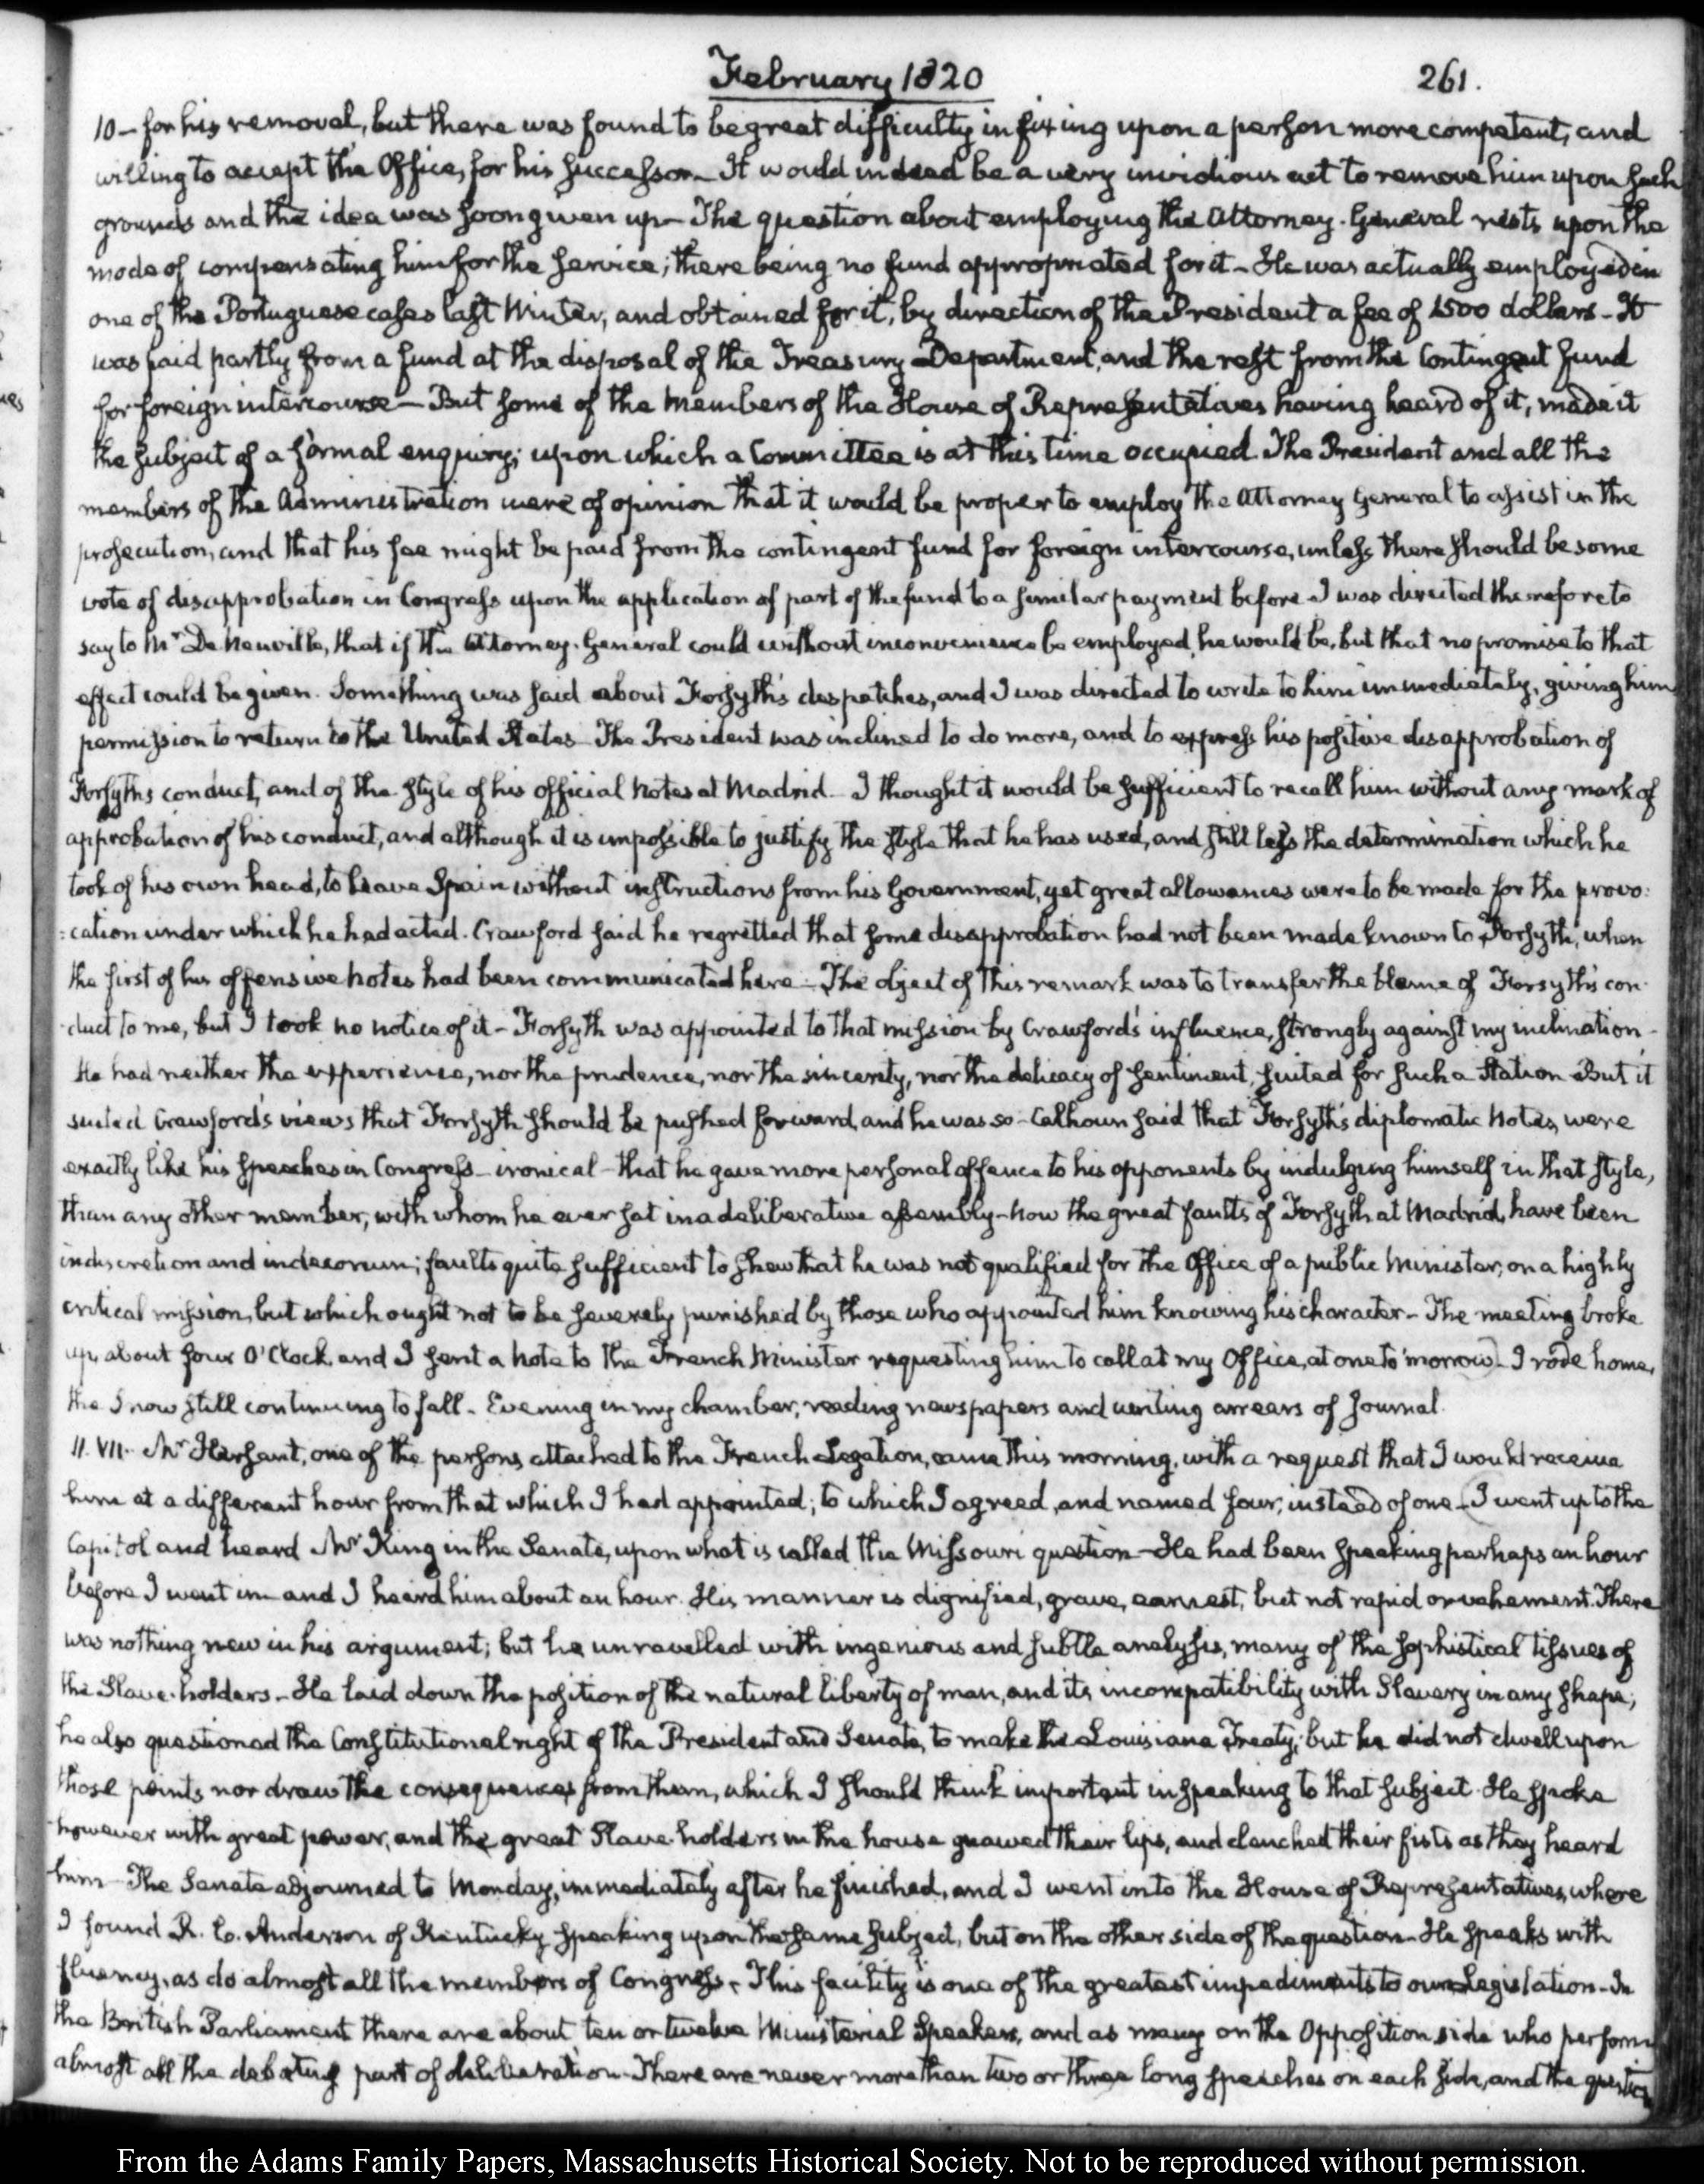 February 1820
261.
10 – for his removal, but there was found to be great difficulty in fixing upon a person more competent, and
willing to accept the Office, for his successor – It would indeed be a very invidious act to remove him upon such
grounds and the idea was soon given up – The question about employing the Attorney-General rests upon the
mode of compensating him for the service; there being no fund appropriated for it – He was actually employed in
one of the Portuguese cases last Winter, and obtained for it, by direction of the President a fee of 1500 dollars – It
was paid partly from a fund at the disposal of the Treasury Department, and the rest from the Contingent fund
for foreign intercourse – But some of the Members of the House of Representatives having heard of it, made it
the subject of a formal enquiry; upon which a Committee is at this time occupied. The President and all the
members of the Administration were of opinion that it would be proper to employ the Attorney General to assist in the
prosecution, and that his fee might be paid from the contingent fund for foreign intercourse, unless there should be some
vote of disapprobation in Congress upon the application of part of the fund to a similar payment before – I was directed therefore to
say to Mr De Neuville, that if the Attorney-General could without inconvenience be employed, he would be, but that no promise to that
effect could be given. Something was said about Forsyth's despatches, and I was directed to write to him immediately, giving him
permission to return to the United States – The President was inclined to do more, and to express his positive disapprobation of
Forsyth's conduct, and of the style of his official Notes at Madrid – I thought it would be sufficient to recall him without any mark of
approbation of his conduct, and although it is impossible to justify the style that he has used, and still less the determination which he
took of his own head, to leave Spain without instructions from his Government, yet great allowances were to be made for the provo:
:cation under which he had acted. Crawford said he regretted that some disapprobation had not been made known to Forsyth, when
the first of his offensive Notes had been communicated here – The object of this remark was to transfer the blame of Forsyth's con-
-duct to me, but I took no notice of it – Forsyth was appointed to that mission by Crawford's influence, strongly against my inclination –
He had neither the experience, nor the prudence, nor the sincerity, nor the delicacy of sentiment, suited for such a Station – But it
suited Crawford's views that Forsyth should be pushed forward, and he was so – Calhoun said that Forsyth's diplomatic Notes, were
exactly like his speeches in Congress – ironical – that he gave more personal offence to his opponents by indulging himself in that style,
than any other member, with whom he ever sat in a deliberative assembly – Now the great faults of Forsyth at Madrid, have been
indiscretion and indecorum; faults quite sufficient to shew that he was not qualified for the Office of a public Minister, on a highly
critical mission, but which ought not to be severely punished by those who appointed him knowing his character – The meeting broke
up, about four O'Clock, and I sent a Note to the French Minister requesting him to call at my Office, at one to'morrow – I rode home,
the Snow still continuing to fall. Evening in my chamber, reading newspapers and writing arrears of Journal.
11. VII. Mr Hersant, one of the persons attached to the French Legation, came this morning, with a request that I would receive
him at a different hour from that which I had appointed; to which I agreed, and named four, instead of one – I went up to the
Capitol and heard Mr King in the Senate, upon what is called the Missouri question – He had been speaking perhaps an hour
before I went in – and I heard him about an hour. His manner is dignified, grave, earnest, but not rapid or vehement. There
was nothing new in his argument; but he unravelled with ingenious and subtle analysis, many of the sophistical tissues of
the Slave-holders – He laid down the position of the natural liberty of man, and its incompatibility with Slavery in any shape;
he also questioned the Constitutional right of the President and Senate, to make the Louisiana Treaty; but he did not dwell upon
those points nor draw the consequences from them, which I should think important in speaking to that subject. He spoke
however with great power, and the great Slave-holders in the house gnawed their lips, and clenched their fists as they heard
him – The Senate adjourned to Monday, immediately after he finished, and I went into the House of Representatives, where
I found R. C. Anderson of Kentucky speaking upon the same subject, but on the other side of the question – He speaks with
fluency, as do almost all the members of Congress – This facility is one of the greatest impediments to our Legislation – In
the British Parliament there are about ten or twelve Ministerial Speakers, and as many on the Opposition side who perform
almost all the debating part of deliberation – There are never more than two or three long speeches on each side, and the question
From the Adams Family Papers, Massachusetts Historical Society. Not to be reproduced without permission.